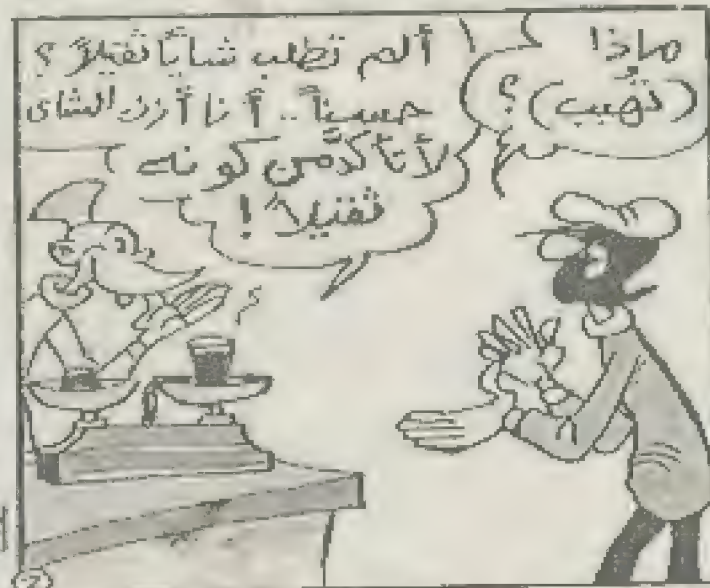 ماذا
(تهيب)؟
ألم تطلب شاياً ثقيلاً؟
حسناً.. أنا أزن الشاى
لأتأكد من كونه
ثقيلاً!
2